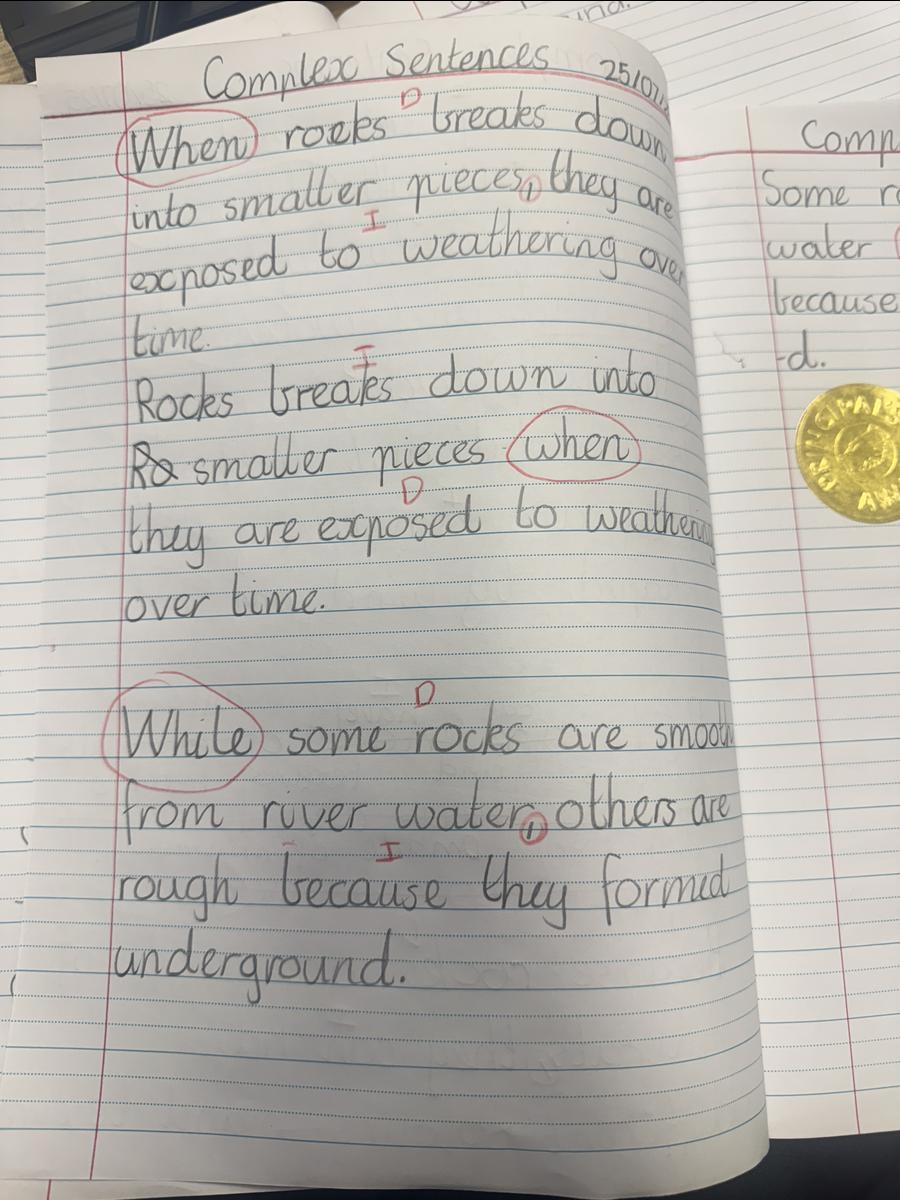 Complex Sentences 25/07/
When rocks breaks down
into smaller pieces, they are
exposed to weathering over
time.
Rocks breaks down into
smaller pieces when
they are exposed to weathering
over time.
While some rocks are smooth
from river water, others are
rough because they formed
underground.
D
I
I
D
D
I
Comp
Some
water
because
-d.
PRINCIPAL'S